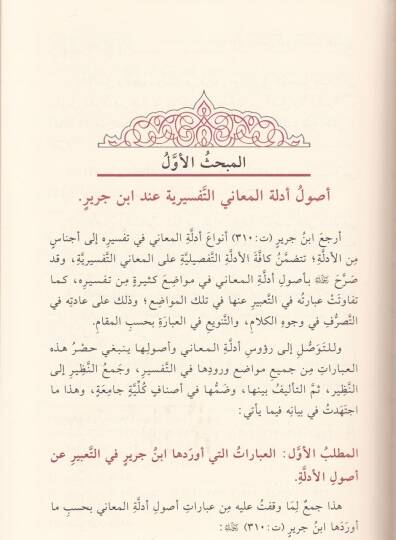 المبحثُ الأوَّلُ
أصولُ أدلة المعاني التَّفسيرية عند ابن جريرٍ.
أرجعَ ابنُ جريرٍ (ت:٣١٠) أنواعَ أدلَّةِ المعاني في تفسيره إلى أجناسٍ
مِن الأدلَّةِ؛ تتضمَّنُ كافَّةَ الأدلَّةِ التَّفصيليَّةِ على المعاني التَّفسيريَّةِ، وقد
صرَّحَ ﵀ بأصولِ أدلَّةِ المعاني في مواضِعَ كثيرةٍ مِن تفسيرِه، كما
تفاوتَتْ عبارتُه في التَّعبيرِ عنها في تلك المواضِعِ؛ وذلك على عادتِه في
التَّصرُّفِ في وجوهِ الكلامِ، والتَّنويعِ في العبارَةِ بحسبِ المقامِ.
وللتَوَصُّلِ إلى رؤوسِ أدلَّةِ المعاني وأصولِها ينبغي حصْرُ هذه
العباراتِ مِن جميعِ مواضعِ ورودِها في التَّفسيرِ، وجَمعُ النَّظيرِ إلى
النَّظيرِ، ثمَّ التأليفُ بينها، وضَمُّها في أصنافٍ كُلِّيَّةٍ جامِعَةٍ، وهذا ما
اجتَهَدتُ في بيانِه فيما يأتي:
المطلبُ الأوَّل: العباراتُ التي أورَدها ابنُ جريرٍ في التَّعبيرِ عن
أصولِ الأدلَّةِ.
هذا جمعٌ لِمَا وقفتُ عليه مِن عباراتِ أصولِ أدلَّةِ المعاني بحسبِ ما
أورَدَها ابنُ جريرٍ (ت:٣١٠) ﵀ :